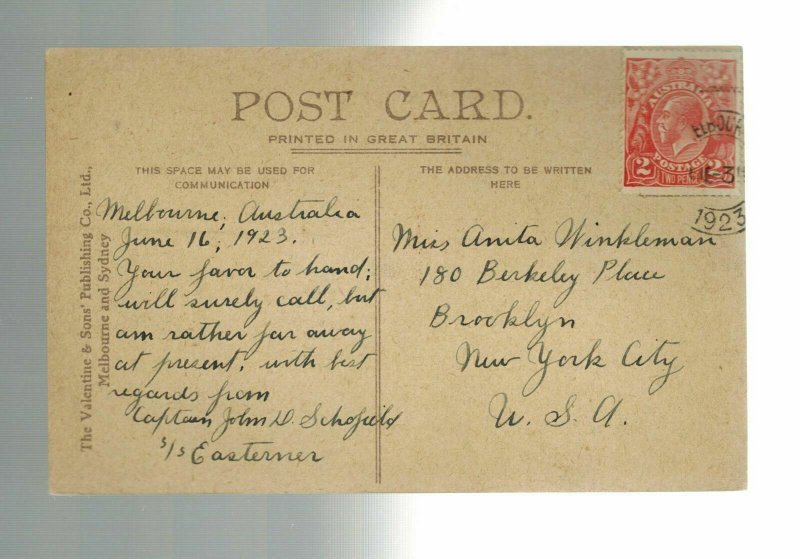 POST CARD.
PRINTED IN GREAT BRITAIN
THIS SPACE MAY BE USED FOR
COMMUNICATION
THE ADDRESS TO BE WRITTEN
HERE
The Valentine & Sons' Publishing Co., Ltd.,
Melbourne and Sydney
Melbourne, Australia
June 16, 1923.
Your favor to hand;
will surely call, but
am rather far away
at present, with best
regards from
Captain John D. Schofield
s/s Easterner
Miss Anita Winkleman
180 Berkeley Place
Brooklyn
New York City
U. S. A.
AUSTRALIA
2 POSTAGE 2
TWO PENCE
ELBOUR
1923